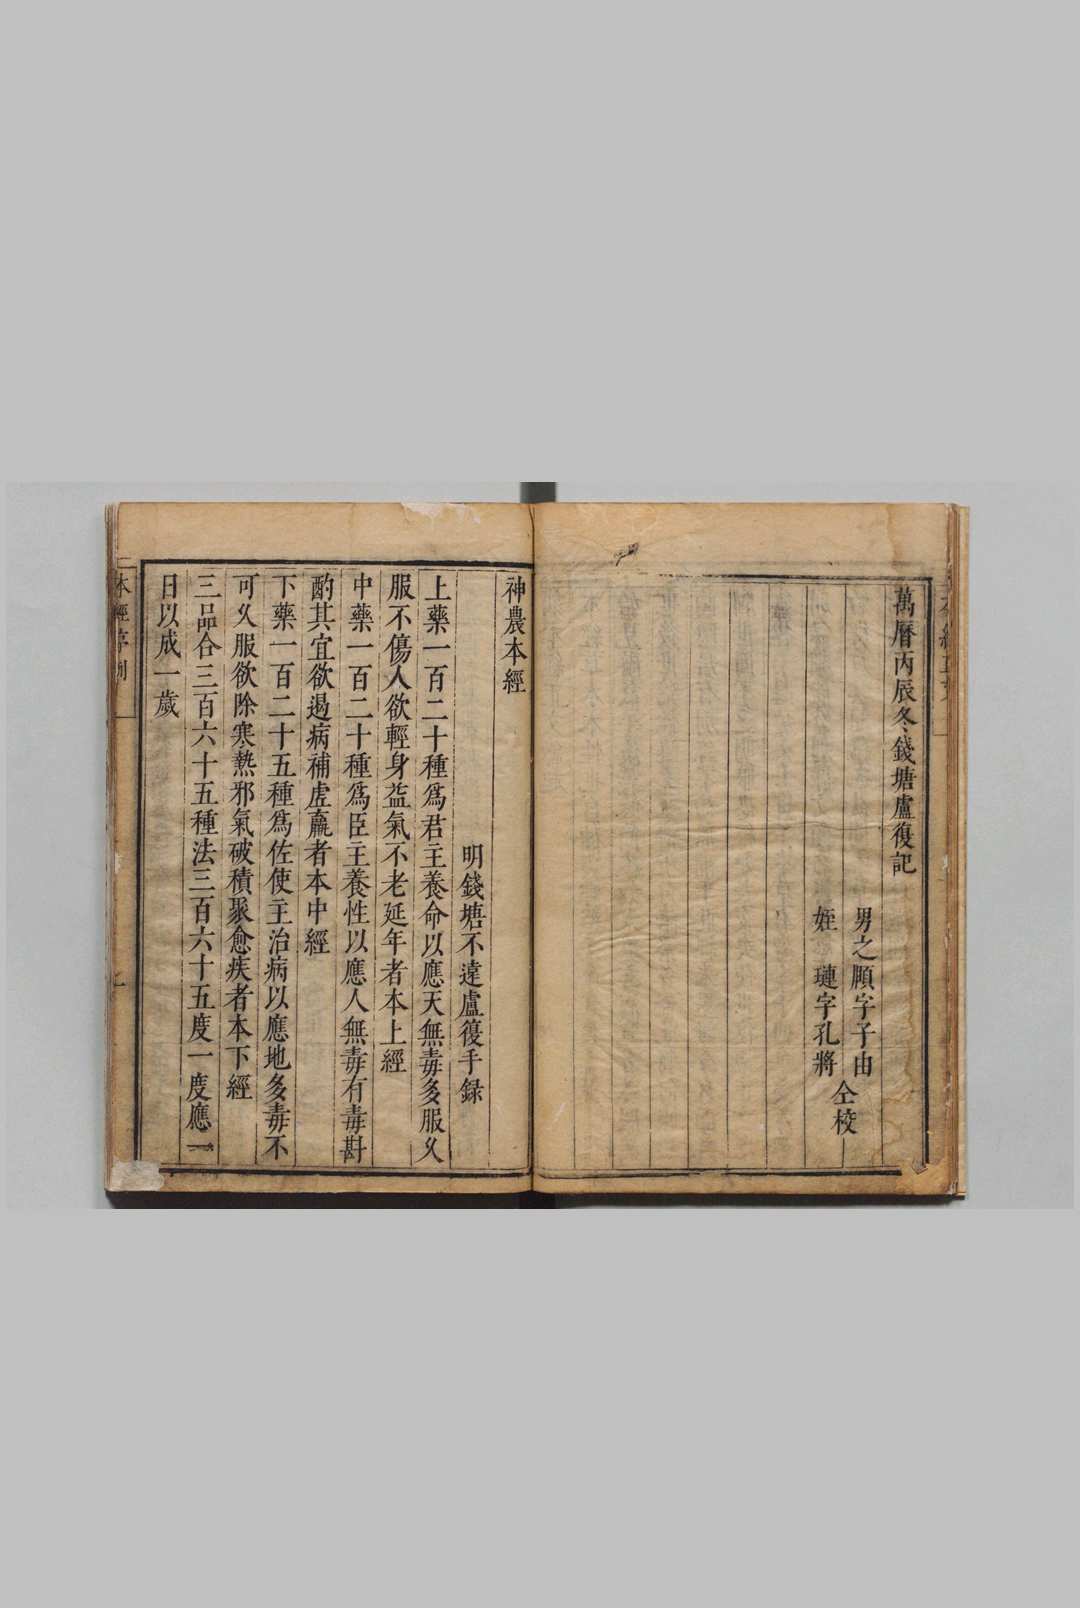 萬曆丙辰冬錢塘盧復記
男之頤字子由
姪　璉字孔將
仝校
神農本經
明錢塘不遠盧復手録
上藥一百二十種爲君主養命以應天無毒多服久
服不傷人欲輕身益氣不老延年者本上經
中藥一百二十種爲臣主養性以應人無毒有毒斟
酌其宜欲遏病補虛羸者本中經
下藥一百二十五種爲佐使主治病以應地多毒不
可久服欲除寒熱邪氣破積聚愈疾者本下經
三品合三百六十五種法三百六十五度一度應一
日以成一歲
本經序例